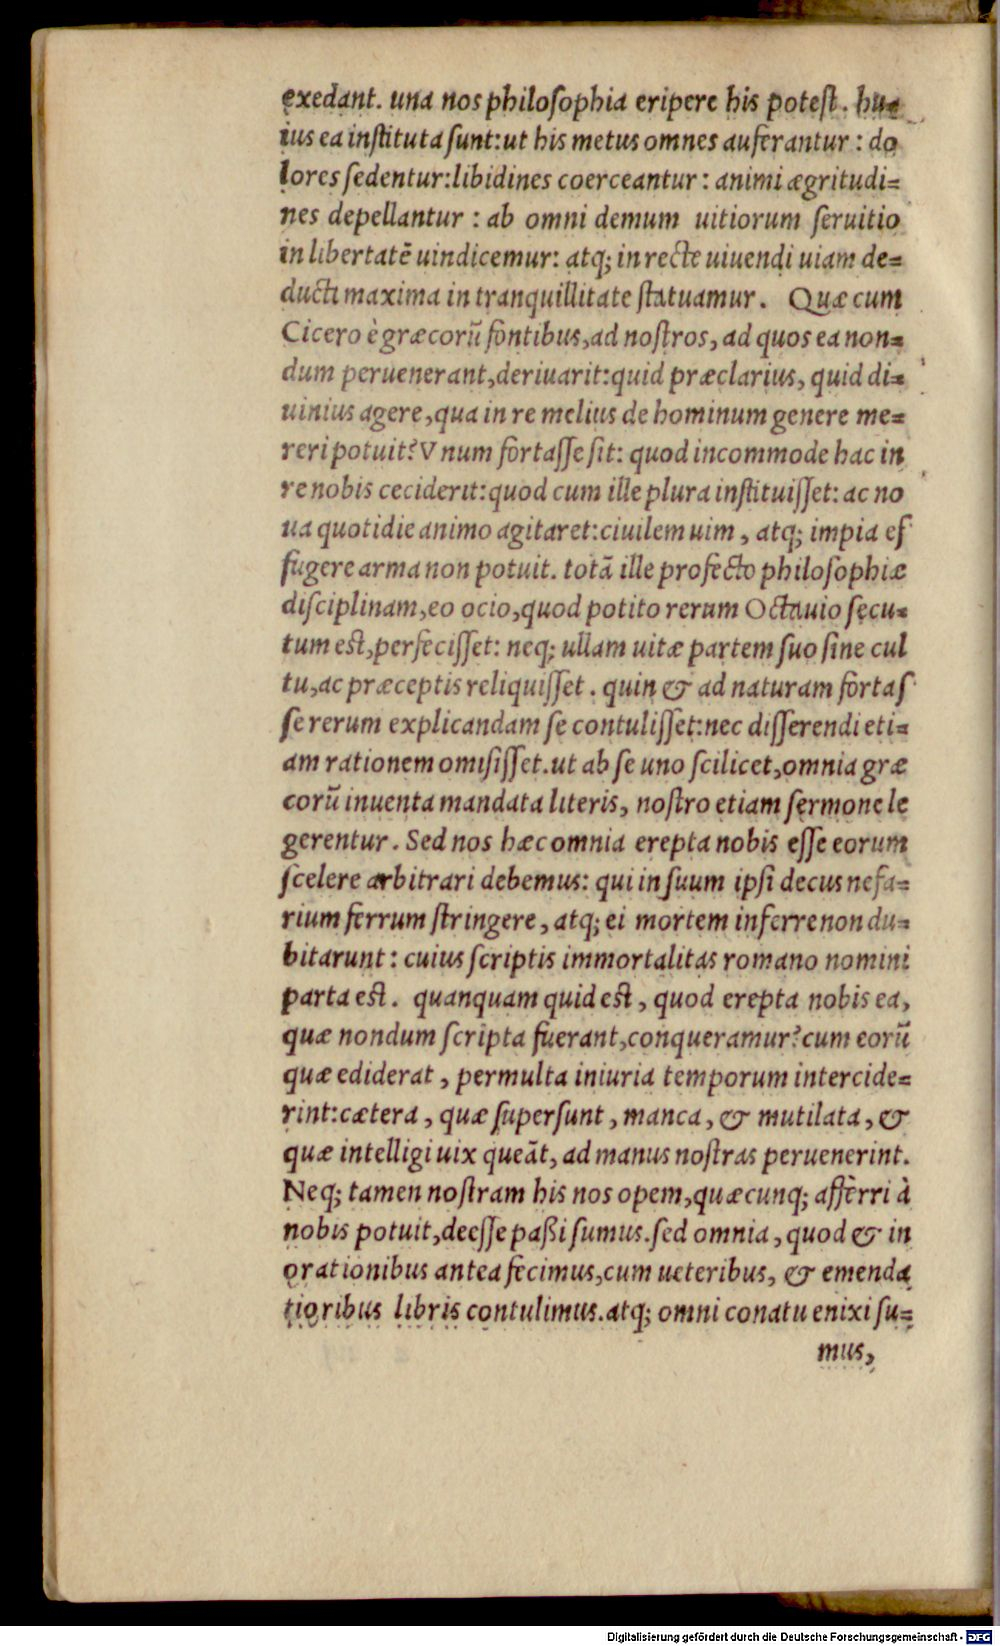 exedant. una nos philoſophia eripere his poteſt. hu-
ius ea inſtituta ſunt:ut his metus omnes auferantur : do
lores ſedentur:libidines coerceantur : animi ægritudi=
nes depellantur : ab omni demum uitiorum ſeruitio
in libertatē uindicemur: atq; in recte uiuendi uiam de=
ducti maxima in tranquillitate ſtatuamur. Quæ cum
Cicero è græcorũ fontibus,ad noſtros, ad quos ea non=
dum peruenerant,deriuarit:quid præclarius, quid di=
uinius agere,qua in re melius de hominum genere me=
reri potuit? Vnum fortaſſe ſit: quod incommode hac in
re nobis ceciderit:quod cum ille plura inſtituiſſet: ac no
ua quotidie animo agitaret:ciuilem uim, atq; impia ef
fugere arma non potuit. totã ille profecto philoſophiæ
diſciplinam,eo ocio,quod potito rerum Octauio ſecu=
tum eſt,perfeciſſet: neq; ullam uitæ partem ſuo ſine cul
tu,ac præceptis reliquiſſet. quin & ad naturam fortaſ
ſe rerum explicandam ſe contuliſſet:nec diſſerendi eti=
am rationem omiſiſſet.ut ab ſe uno ſcilicet,omnia græ
corũ inuenta mandata literis, noſtro etiam ſermone le
gerentur. Sed nos hæc omnia erepta nobis eſſe eorum
ſcelere arbitrari debemus: qui in ſuum ipſi decus nefa=
rium ferrum ſtringere, atq; ei mortem inferre non du=
bitarunt: cuius ſcriptis immortalitas romano nomini
parta eſt. quanquam quid eſt, quod erepta nobis ea,
quæ nondum ſcripta fuerant,conqueramur?cum eorũ
quæ ediderat, permulta iniuria temporum intercide=
rint:cætera, quæ ſuperſunt, manca, & mutilata, &
quæ intelligi uix queãt, ad manus noſtras peruenerint.
Neq; tamen noſtram his nos opem,quæcunq; afferri à
nobis potuit,deeſſe paßi ſumus.ſed omnia, quod & in
orationibus antea fecimus,cum ueteribus, & emenda
tioribus libris contulimus.atq; omni conatu enixi ſu=
mus,
Digitalisierung gefördert durch die Deutsche Forschungsgemeinschaft - DFG